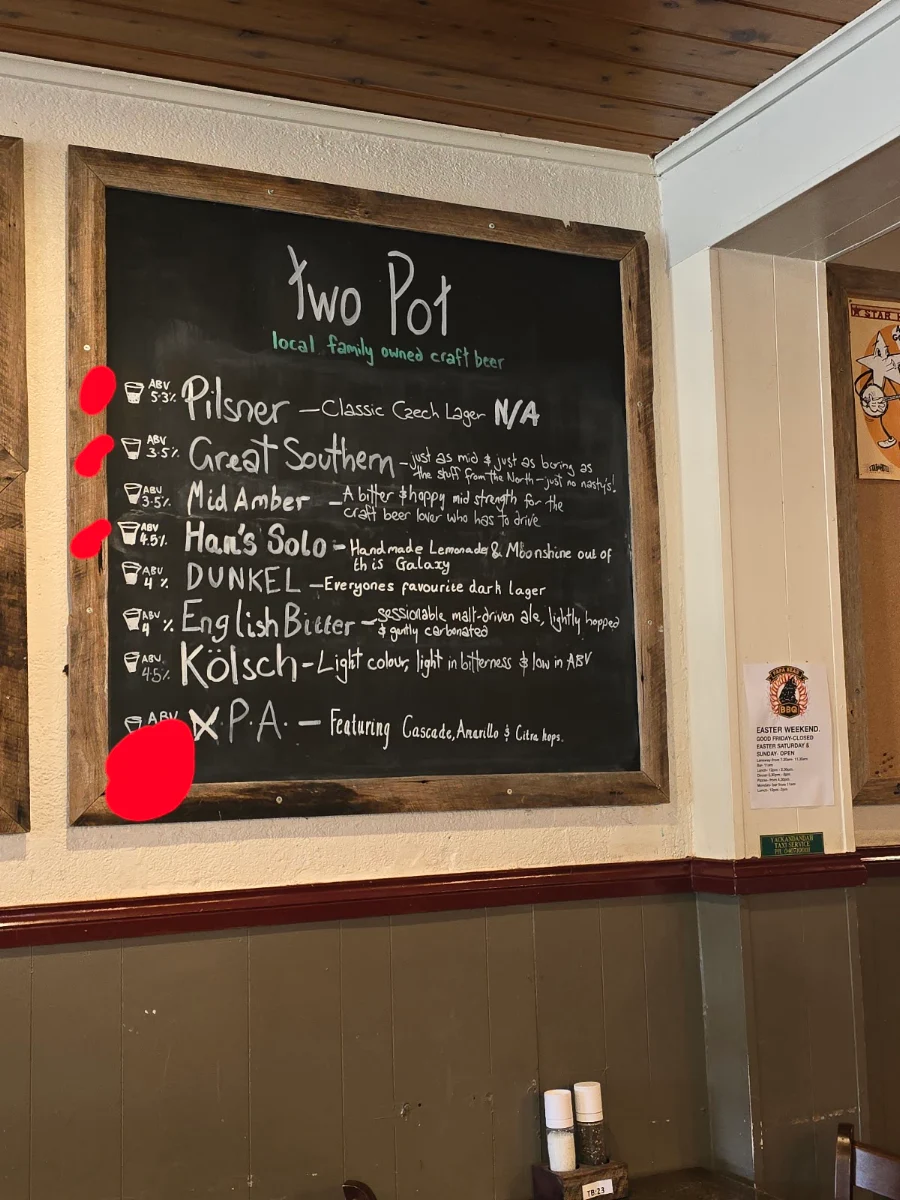 two Pot
local family owned craft beer
ABV 5.3% Pilsner – Classic Czech Lager N/A
ABV 3.5% Great Southern – just as mid & just as boring as
the stuff from the North – just no nasty's!
ABV 3.5% Mid Amber – A bitter & hoppy mid strength for the
craft beer lover who has to drive
ABV 4.5% Han's Solo – Handmade Lemonade & Moonshine out of
this Galaxy
ABV 4% DUNKEL – Everyones favourite dark lager
ABV 4% English Bitter – sessionable malt-driven ale, lightly hopped
& gently carbonated
ABV 4.5% Kölsch – Light colour, light in bitterness & low in ABV
ABV X.P.A. – Featuring Cascade, Amarillo & Citra hops.
STAR
PAPA BEAR
BBQ
EASTER WEEKEND.
GOOD FRIDAY-CLOSED
EASTER SATURDAY &
SUNDAY- OPEN
YACKANDANDAH
TAXI SERVICE
TB:23